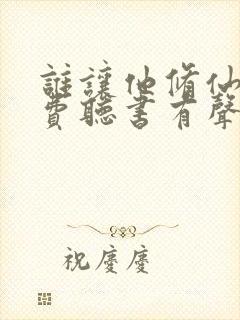 誰讓他修仙
費聽書有聲
祝慶慶